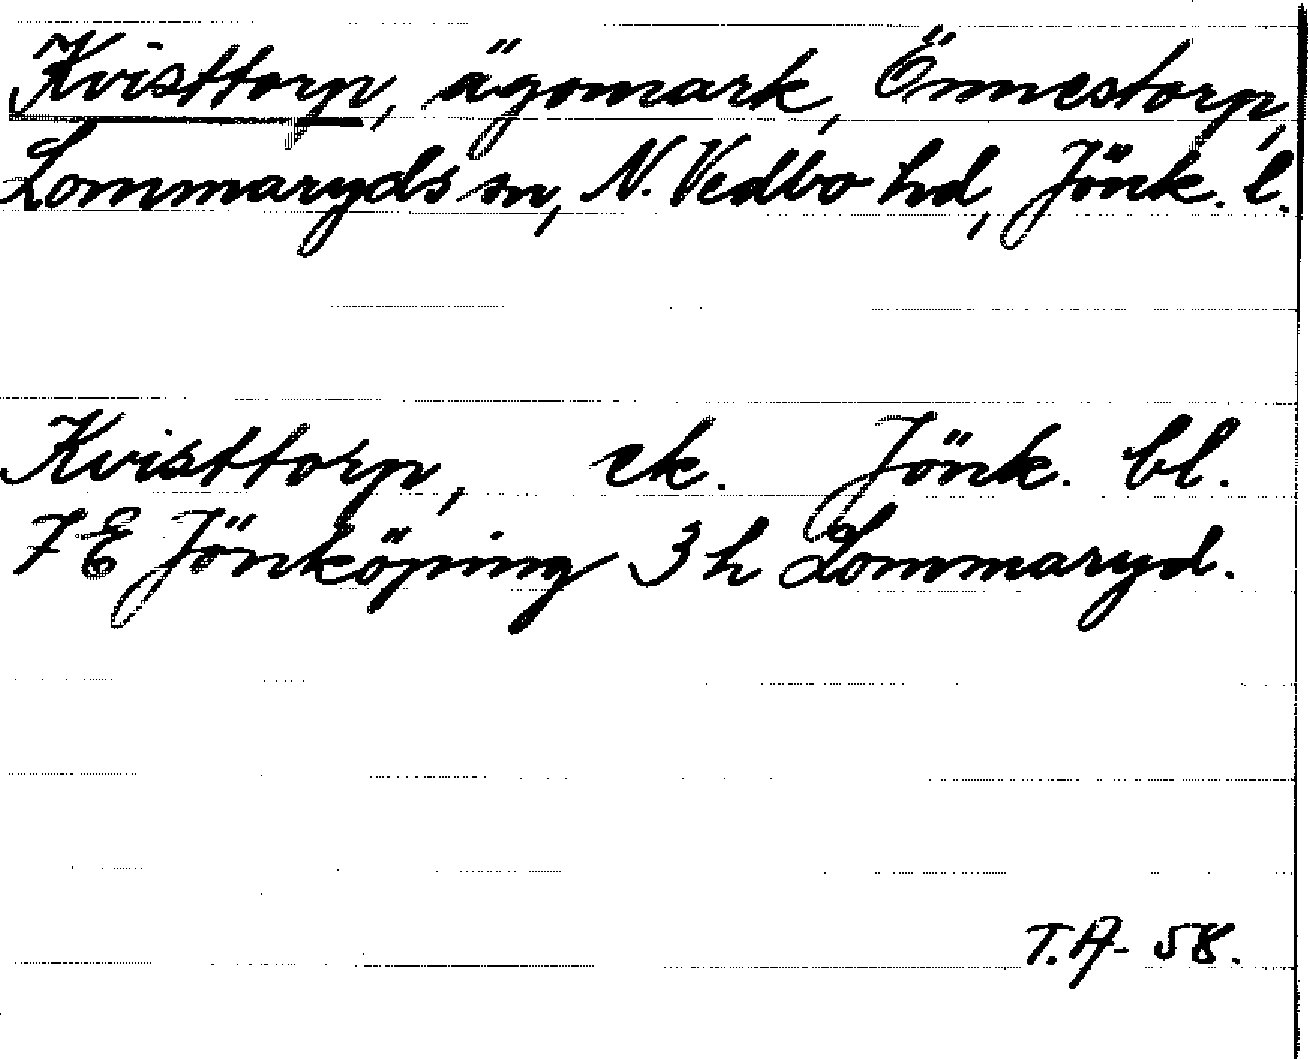 Kvisttorp, ägomark, Önnestorp,
Lommaryds sn, N. Vedbo hd, Jönk. l.
Kvisttorp, ek. Jönk. bl.
7 E Jönköping 3 h Lommaryd.
T.A- 58.